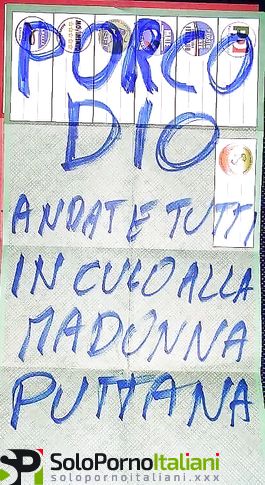 PORCO
DIO
ANDATE TUTTI
IN CULO ALLA
MADONNA
PUTTANA
SoloPornoItaliani
solopornoitaliani.xxx